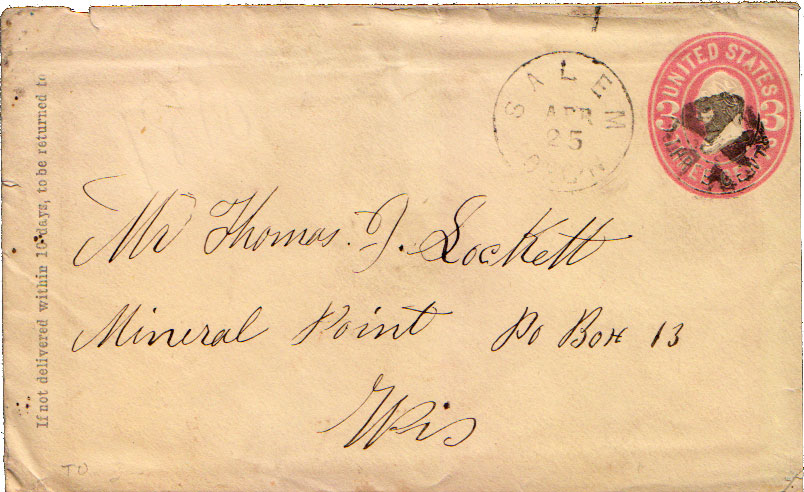 If not delivered within 10 days, to be returned to
SALEM
APR
25
UNITED STATES
3 3
THREE CENTS
Mr Thomas. J. Lockett
Mineral Point Po Box 13
Wis
TO